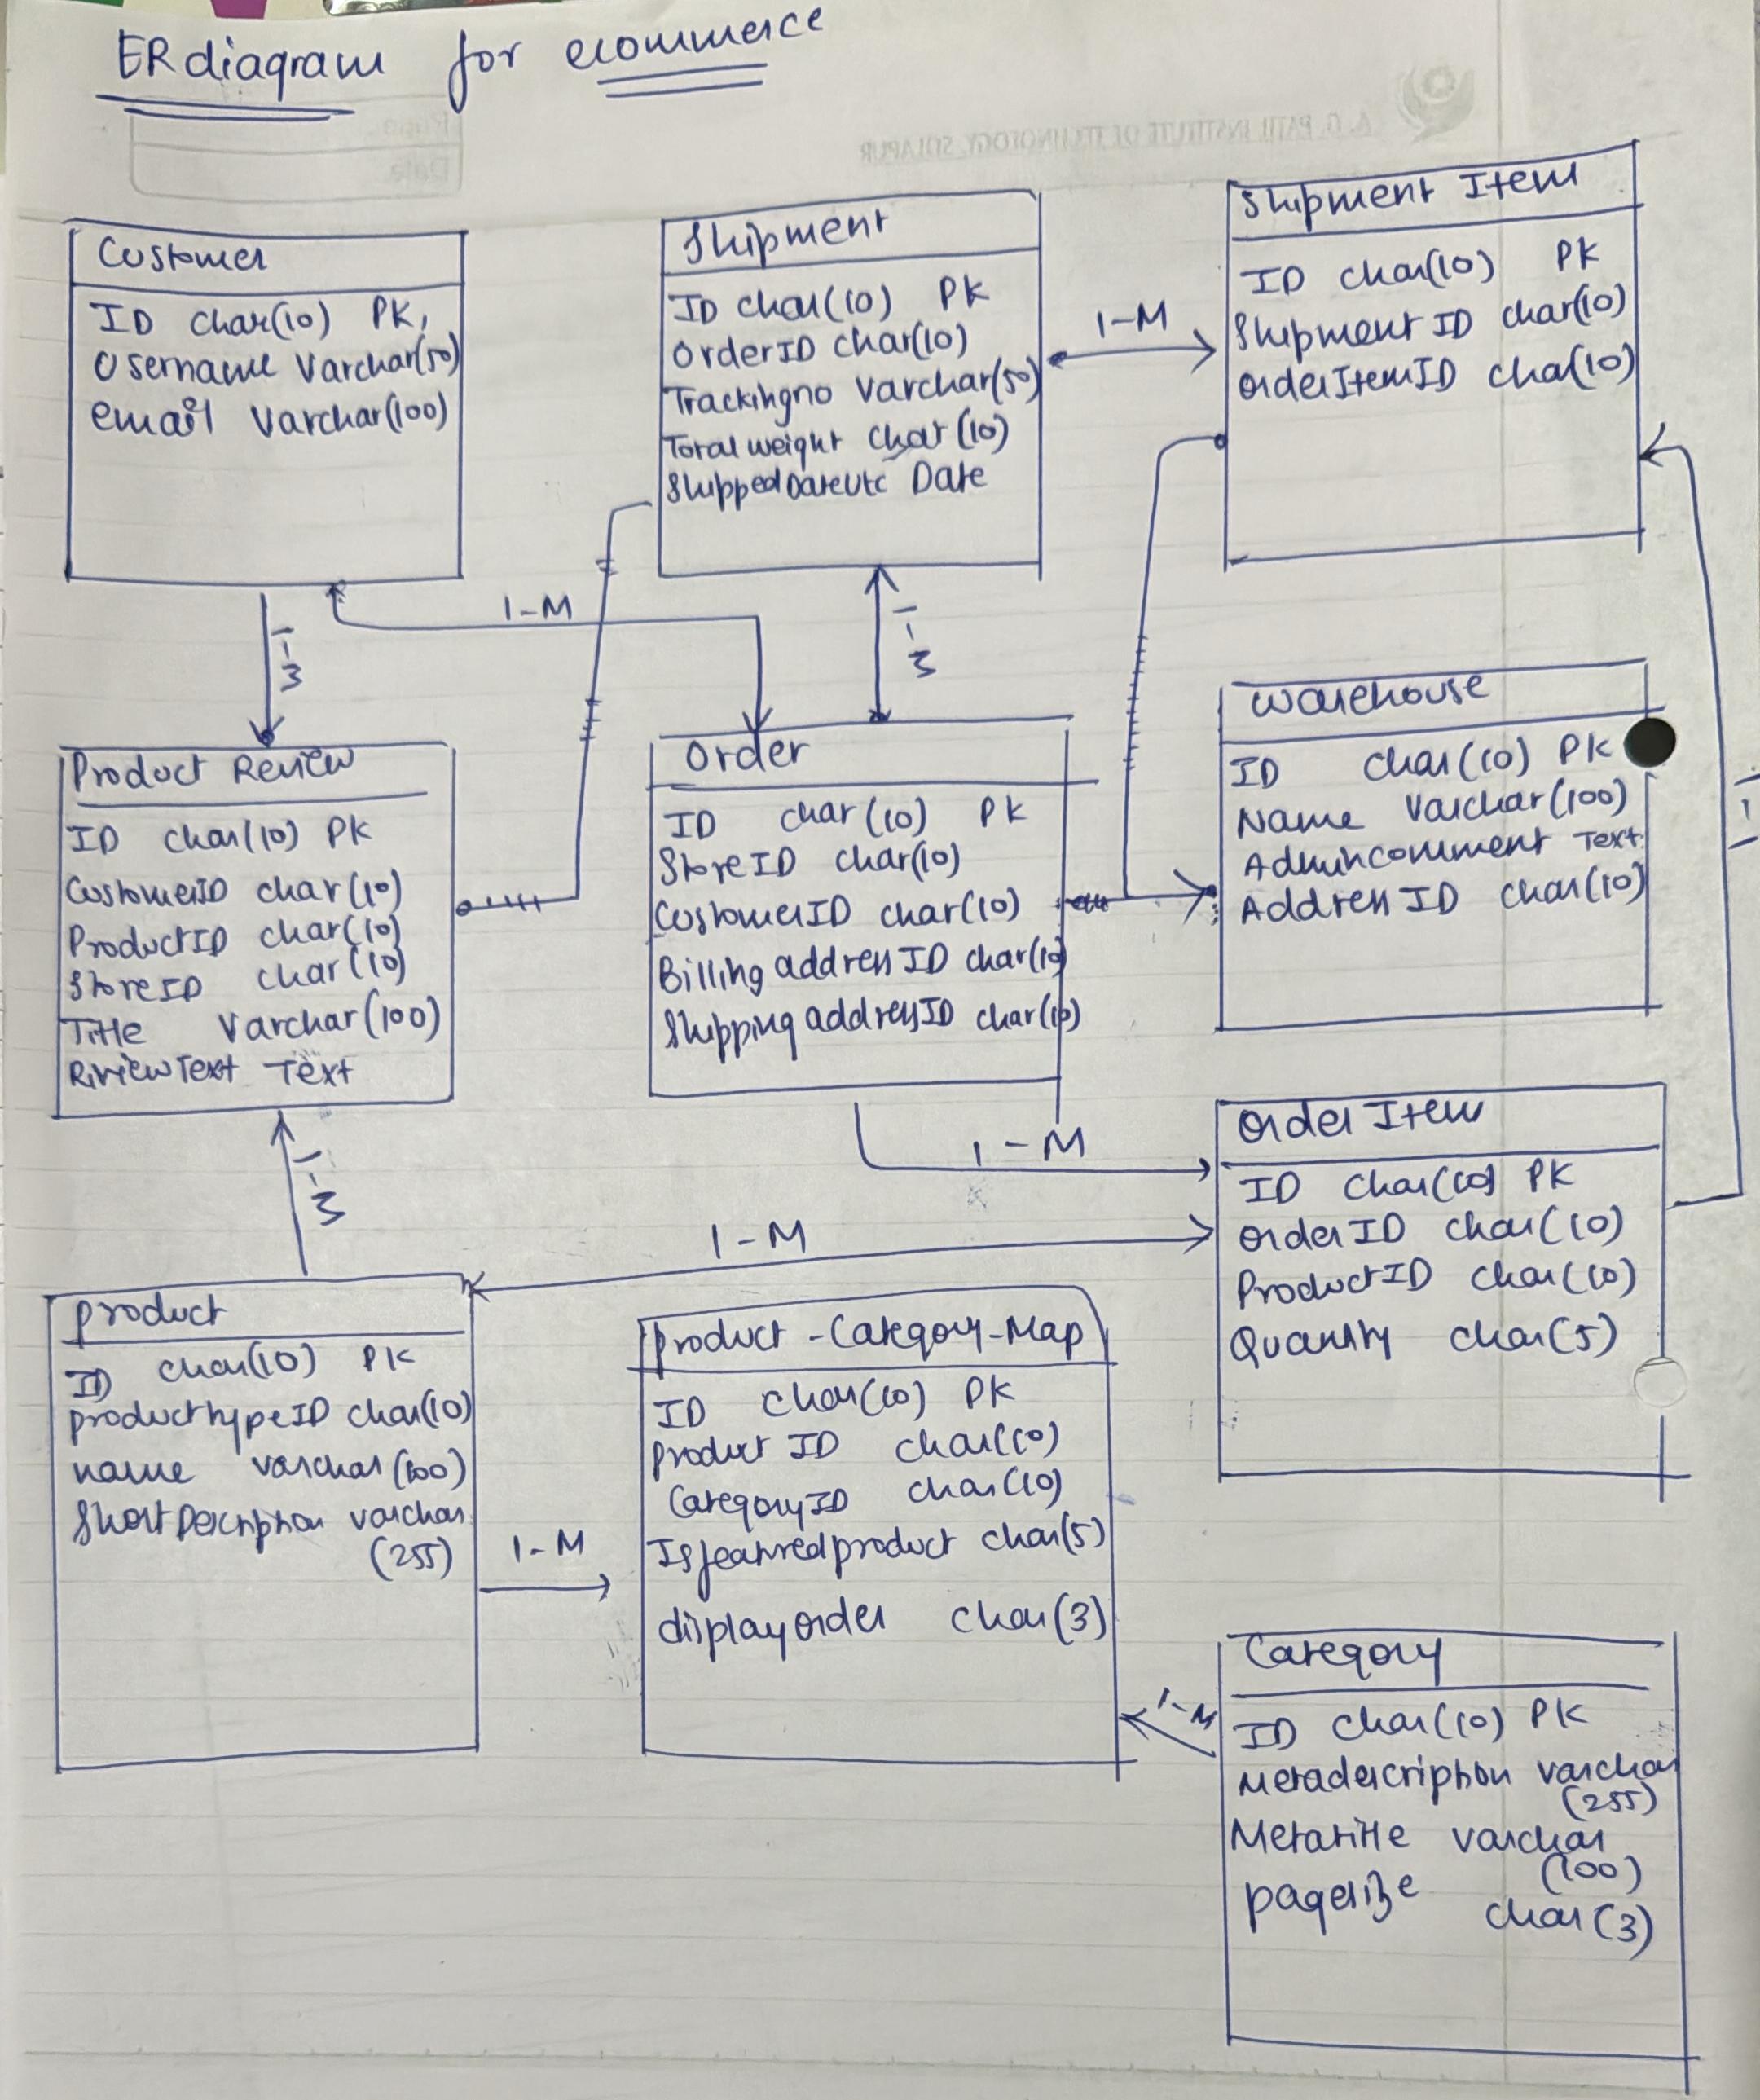 ER diagram for ecommerce
A. G. PATIL INSTITUTE OF TECHNOLOGY, SOLAPUR
Page
Date
Customer
ID char(10) PK,
Username Varchar(50)
email Varchar(100)
Shipment
ID char(10) PK
OrderID char(10)
Trackingno Varchar(50)
Total weight char (10)
ShippedDateUtc Date
Shipment Item
ID char(10) PK
Shipment ID char(10)
OrderItemID char(10)
1-M
1-M
1-M
1-M
Product Review
ID char(10) PK
CustomerID char(10)
ProductID char(10)
StoreID char(10)
Title Varchar(100)
RiviewText Text
Order
ID char(10) PK
StoreID char(10)
CustomerID char(10)
Billing address ID char(10)
Shipping addressID char(10)
Warehouse
ID char(10) PK
Name Varchar(100)
Admincomment Text
Address ID char(10)
1-1
1-M
1-M
1-M
Order Item
ID char(10) PK
Order ID char(10)
ProductID char(10)
Quantity char(5)
product
ID char(10) PK
producttypeID char(10)
name varchar(100)
Short Description varchar
(255)
1-M
product-Category-Map
ID char(10) PK
Product ID char(10)
CategoryID char(10)
Isfeaturedproduct char(5)
displayorder char(3)
1-M
Category
ID char(10) PK
Metadescription varchar
(255)
Metatitle varchar
(100)
pagesize char(3)